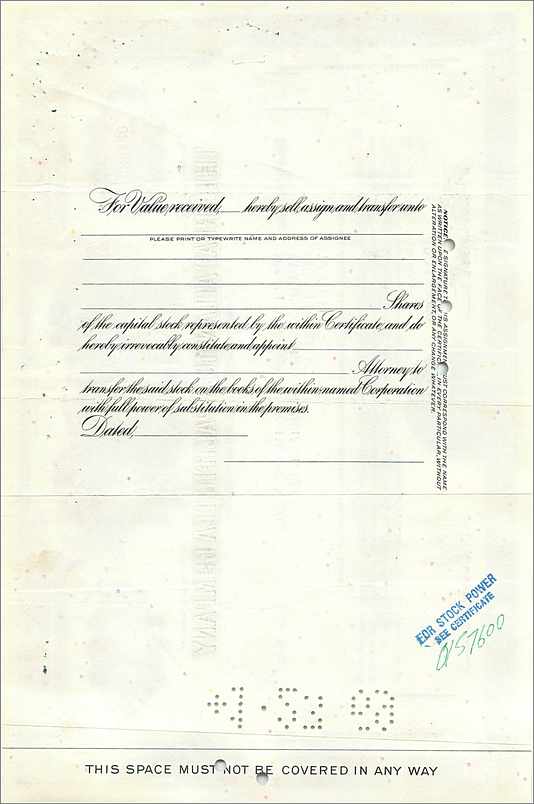 For Value received, ___ hereby sell, assign, and transfer unto
PLEASE PRINT OR TYPEWRITE NAME AND ADDRESS OF ASSIGNEE
Shares
of the capital stock represented by the within Certificate, and do
hereby irrevocably constitute and appoint
Attorney to
transfer the said stock on the books of the within-named Corporation
with full power of substitution in the premises.
Dated,
NOTICE E SIGNATURE T IS ASSIGNMEN UST CORRESPOND WITH THE NAME
AS WRITTEN UPON THE FACE OF THE CERTIFICATE IN EVERY PARTICULAR, WITHOUT
ALTERATION OR ENLARGEMENT, OR ANY CHANGE WHATEVER.
FOR STOCK POWER
SEE CERTIFICATE
57600
THIS SPACE MUST NOT BE COVERED IN ANY WAY